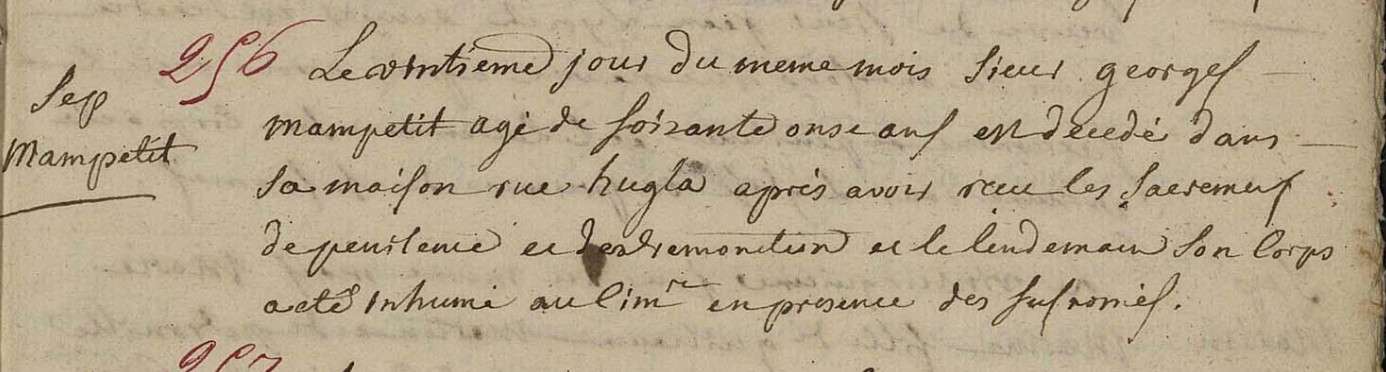 256 Le vintieme jour du meme mois sieur georges
Sep
mampetit agé de soixante onse ans est decedé dans
Mampetit
sa maison rue hugla aprés avoir reçu les sacremens
de penitence et dextremonction et le lendemain son corps
a eté inhumé au Cim.re en presence des susnomés.
257